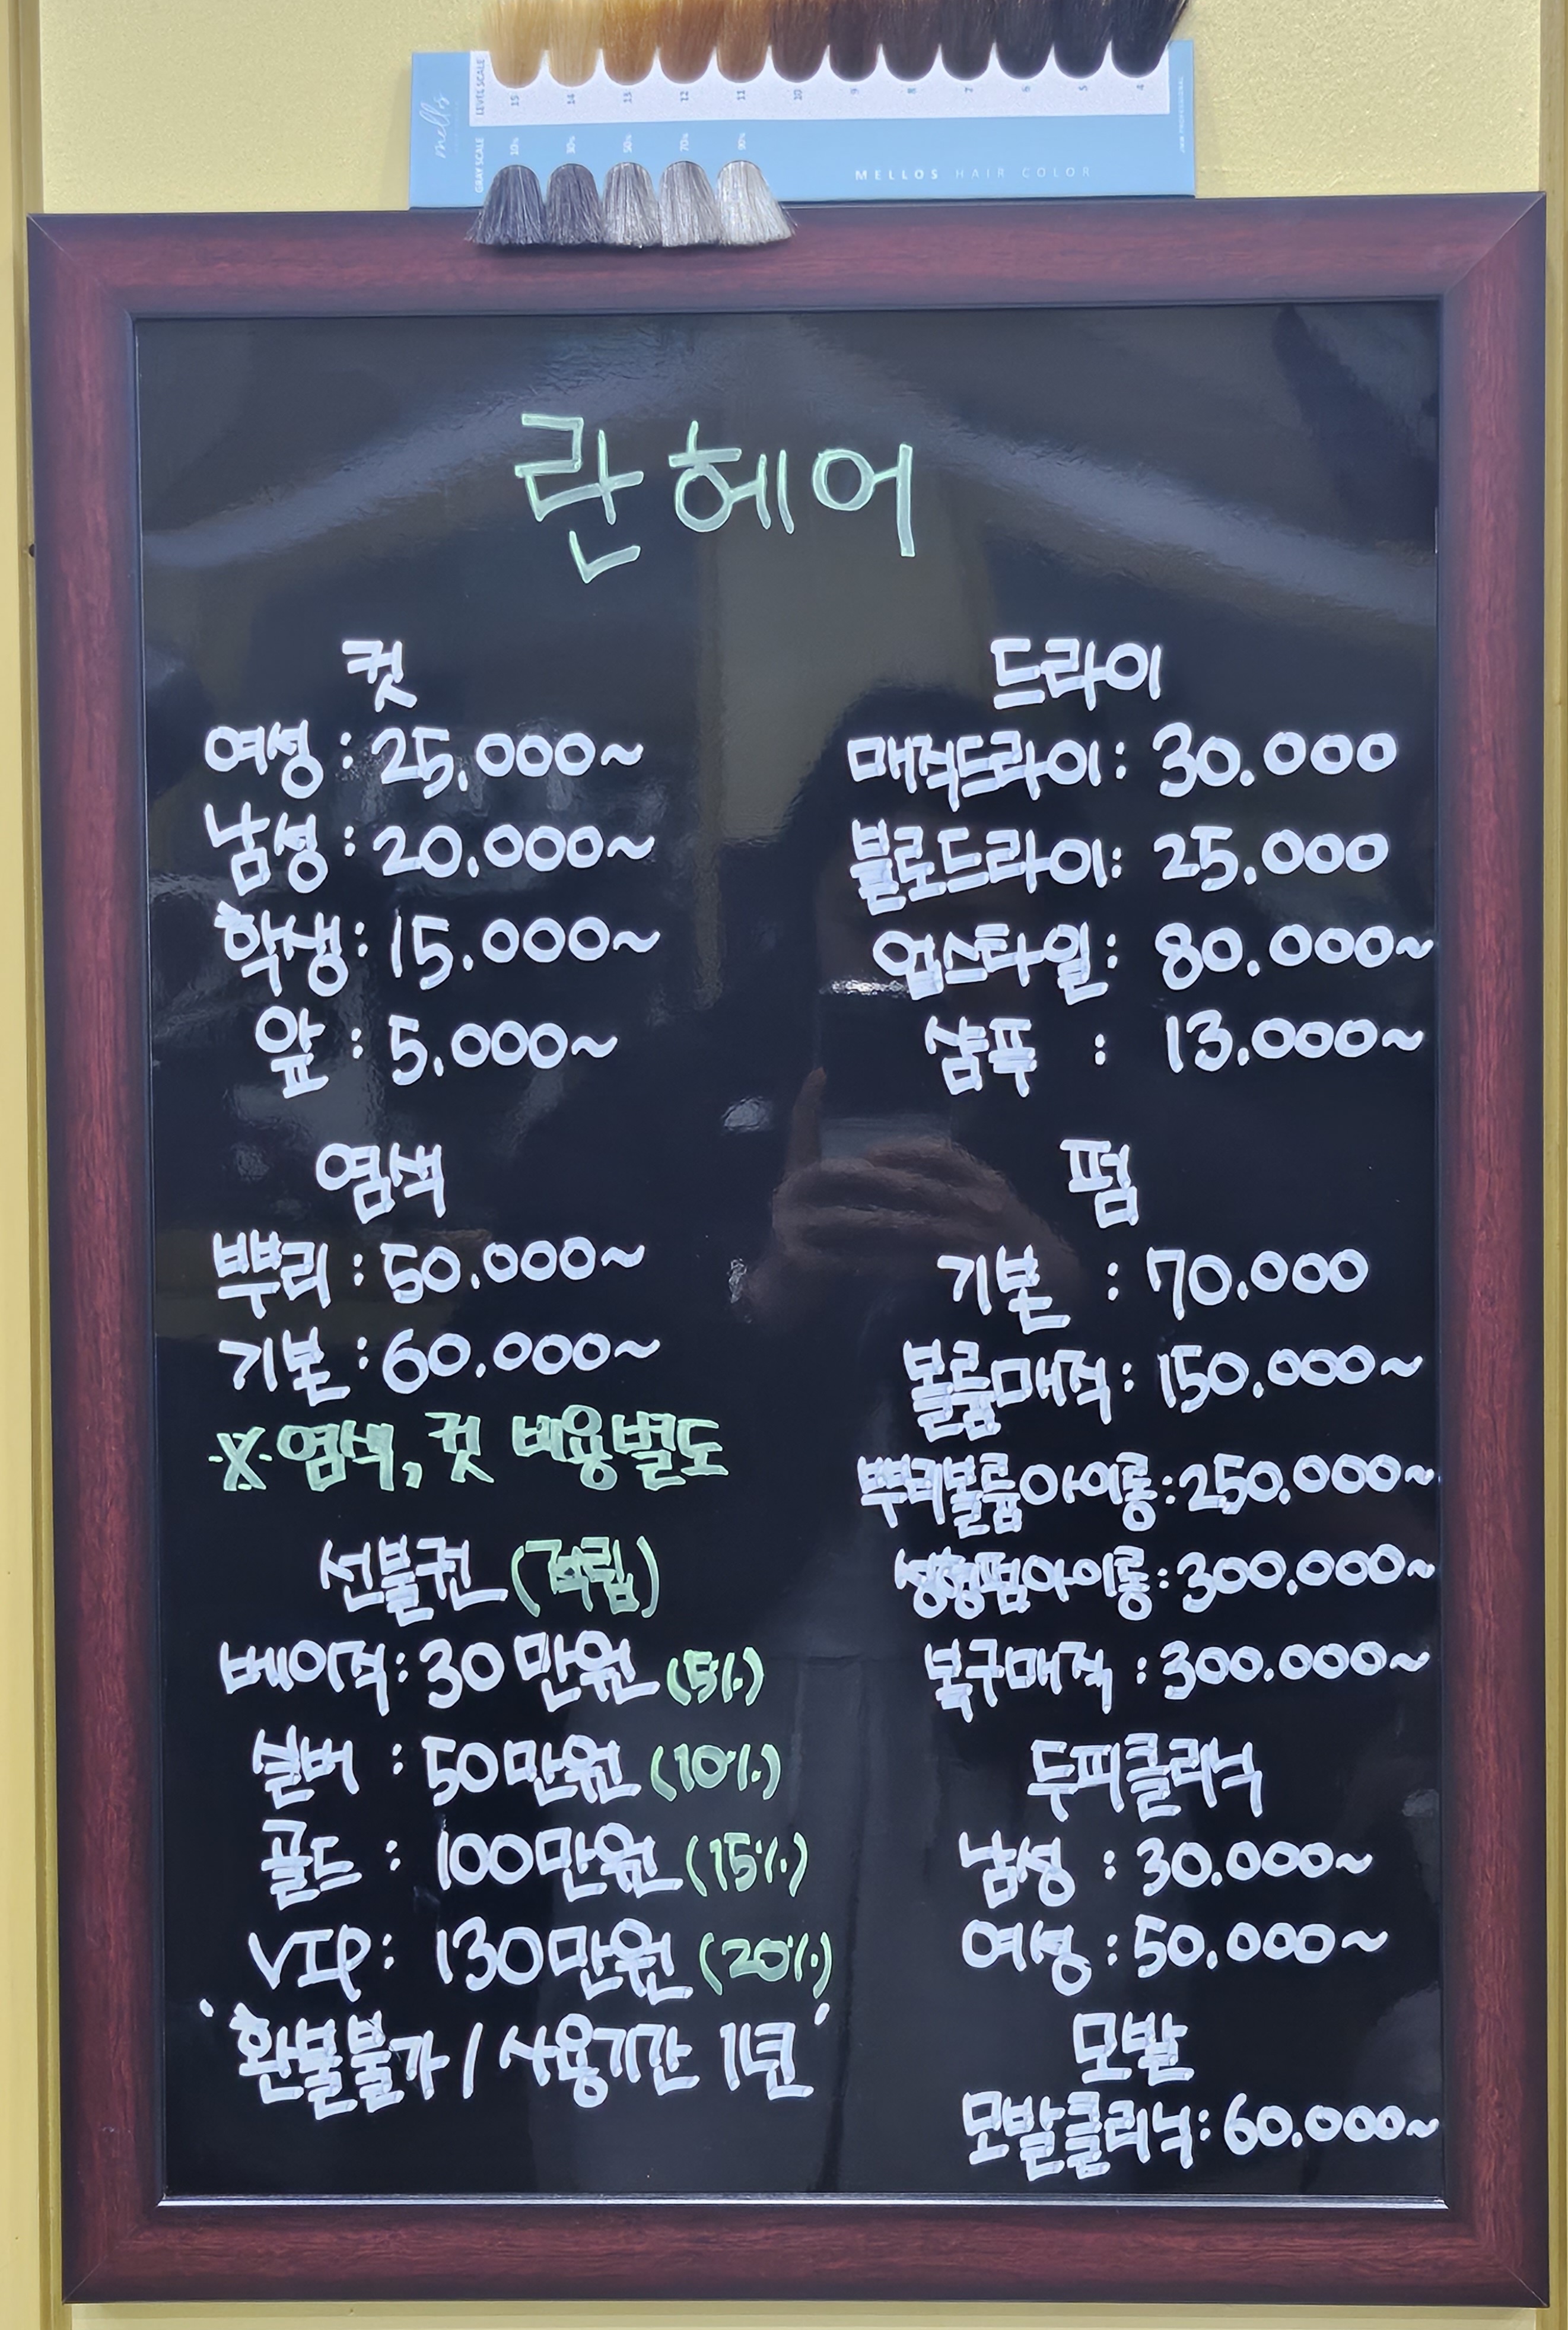 mellos
LEVEL SCALE
15 14 13 12 11 10 9 8 7 6 5 4
GRAY SCALE
10% 30% 50% 70% 90%
MELLOS HAIR COLOR
란헤어
컷
여성 : 25.000~
남성 : 20.000~
학생 : 15.000~
앞 : 5.000~
염색
뿌리 : 50.000~
기본 : 60.000~
※염색, 컷 비용별도
선불권 (적립)
베이직 : 30만원 (5%)
실버 : 50만원 (10%)
골드 : 100만원 (15%)
VIP : 130만원 (20%)
'환불불가 / 사용기간 1년'
드라이
매직드라이 : 30.000
블로드라이 : 25.000
업스타일 : 80.000~
샴푸 : 13.000~
펌
기본 : 70.000
볼륨매직 : 150.000~
뿌리볼륨아이롱 : 250.000~
성형펌아이롱 : 300.000~
복구매직 : 300.000~
두피클리닉
남성 : 30.000~
여성 : 50.000~
모발
모발클리닉 : 60.000~